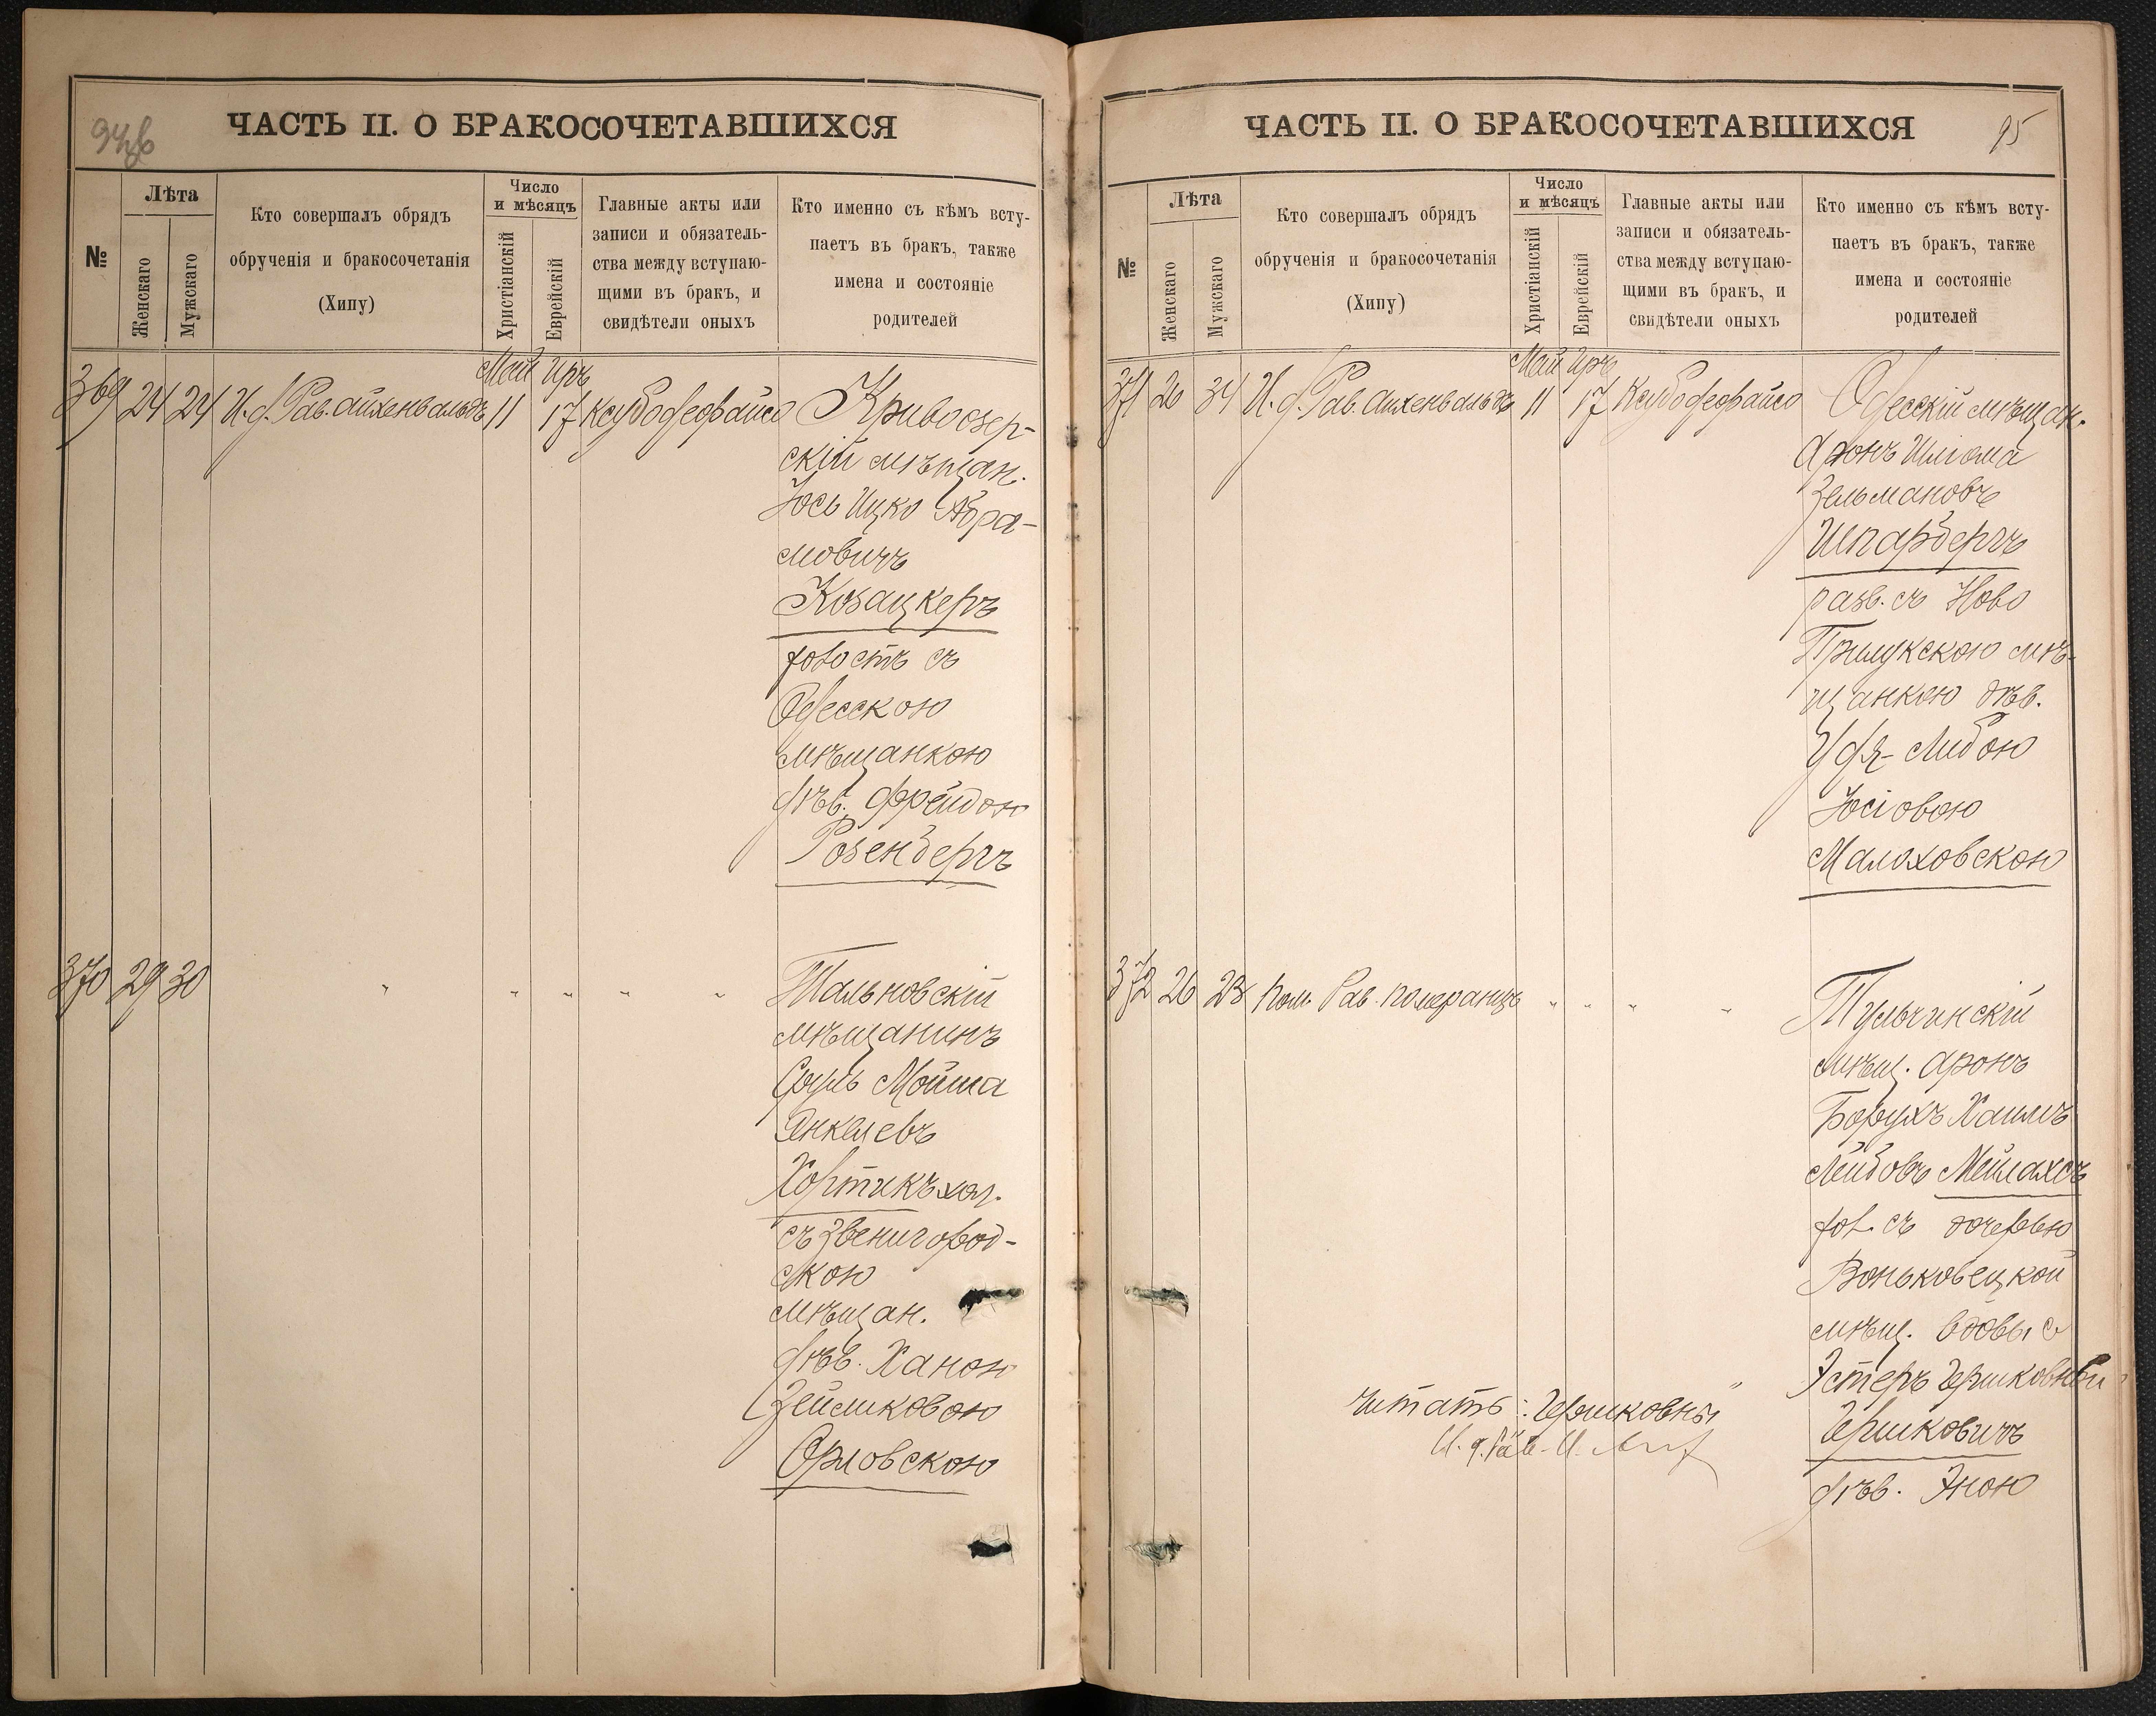 94об
ЧАСТЬ II. О БРАКОСОЧЕТАВШИХСЯ
№
Лѣта
Женскаго
Мужскаго
Кто совершалъ обрядъ
обрученія и бракосочетанія
(Хипу)
Число
и мѣсяцъ
Христіанскій
Еврейскій
Главные акты или
записи и обязатель-
ства между вступаю-
щими въ бракъ, и
свидѣтели оныхъ
Кто именно съ кѣмъ всту-
паетъ въ бракъ, также
имена и состояніе
родителей
Май Иръ
369 24 24 И. д. Рав. Айхенвальдъ 11 17 Кривоозер-
скій мѣщан.
Іось Ицко Абра-
мовичъ
Козацкеръ
холостъ съ
Одесскою
мѣщанкою
дѣв. Фрейдою
Розенбергъ
370 29 30 " " " " " Тальновскій
мѣщанинъ
Сруль Мойша
Янкелевъ
Хортикъ хол.
съ Звенигород-
скою
мѣщан.
дѣв. Ханою
Зейликовою
Орловскою
95
ЧАСТЬ II. О БРАКОСОЧЕТАВШИХСЯ
№
Лѣта
Женскаго
Мужскаго
Кто совершалъ обрядъ
обрученія и бракосочетанія
(Хипу)
Число
и мѣсяцъ
Христіанскій
Еврейскій
Главные акты или
записи и обязатель-
ства между вступаю-
щими въ бракъ, и
свидѣтели оныхъ
Кто именно съ кѣмъ всту-
паетъ въ бракъ, также
имена и состояніе
родителей
Май Иръ
371 26 34 И. д. Рав. Айхенвальдъ 11 17 Одесскій мѣщан.
Аронъ Шлома
Зельмановъ
Шпарбергъ
разв. съ Ново
Прилукскою мѣ-
щанкою дѣв.
Удя-Либою
Іосіовою
Малаховскою
372 26 23 Пом. Рав. Померанцъ " " " " Тульчинскій
мѣщ. Аронъ
Борухъ Хаимъ
Лейбовъ Мейлахсъ
хол. съ дочерью
Воньковецкой
мѣщ. вдовы
Эстеръ Гершковны
Гершковичъ
дѣв. Энею
Читать: "Гершковны"
И. д. Рав.